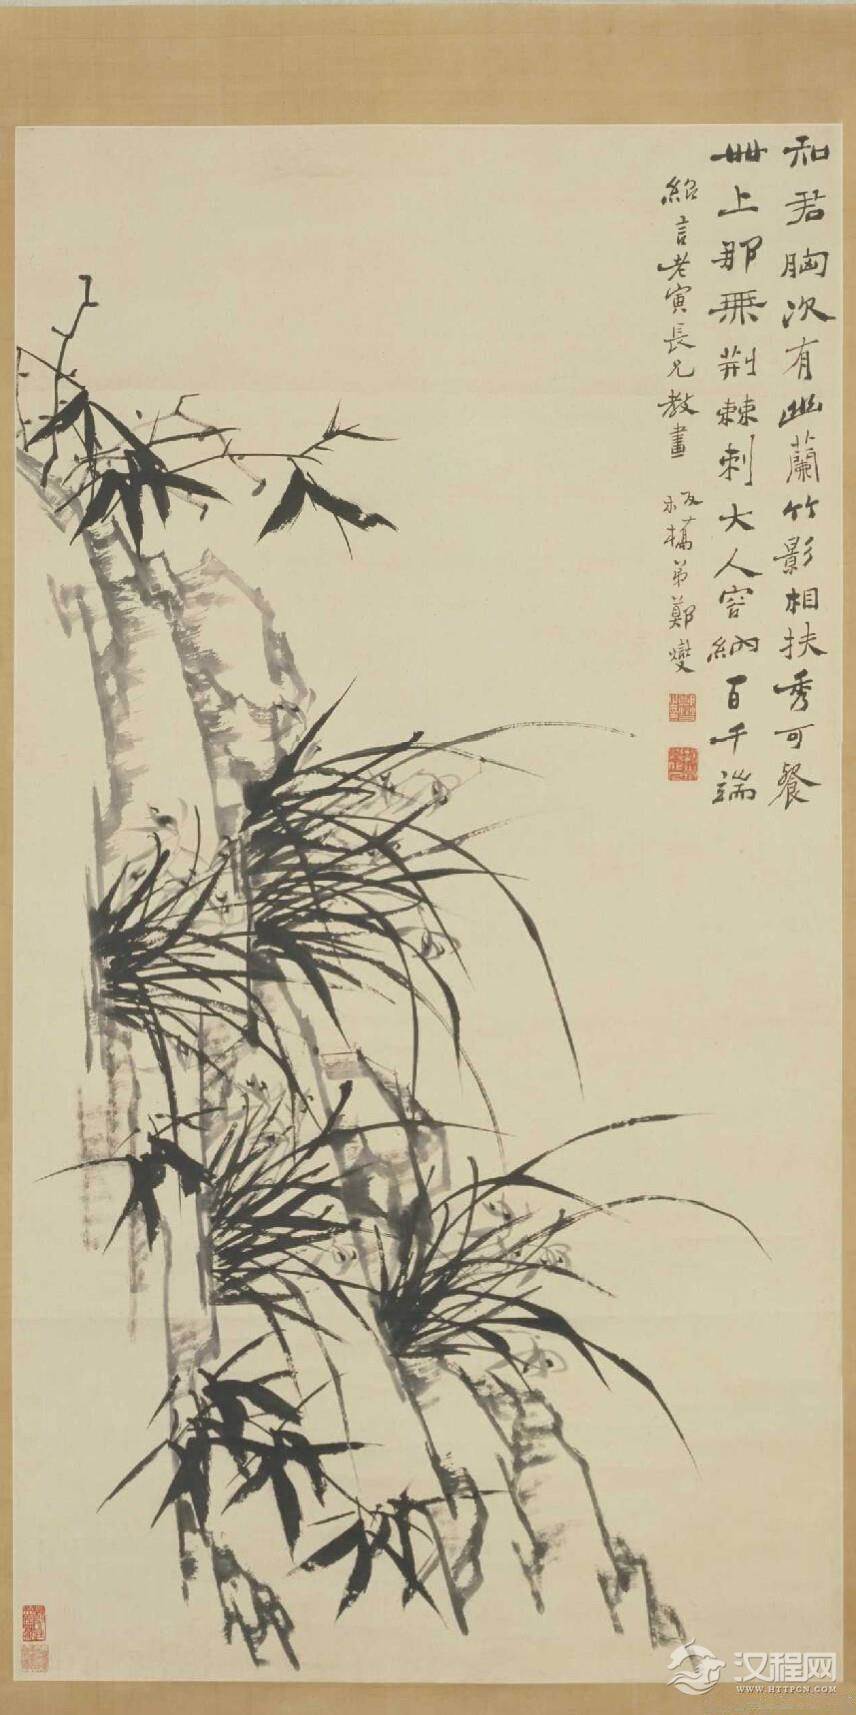 知君胸次有幽蘭竹影相扶秀可餐
世上那無荆棘刺大人容納百千端
紹言老寅長兄教畫 板橋弟鄭燮
汉程网
WWW.HTTPCN.COM